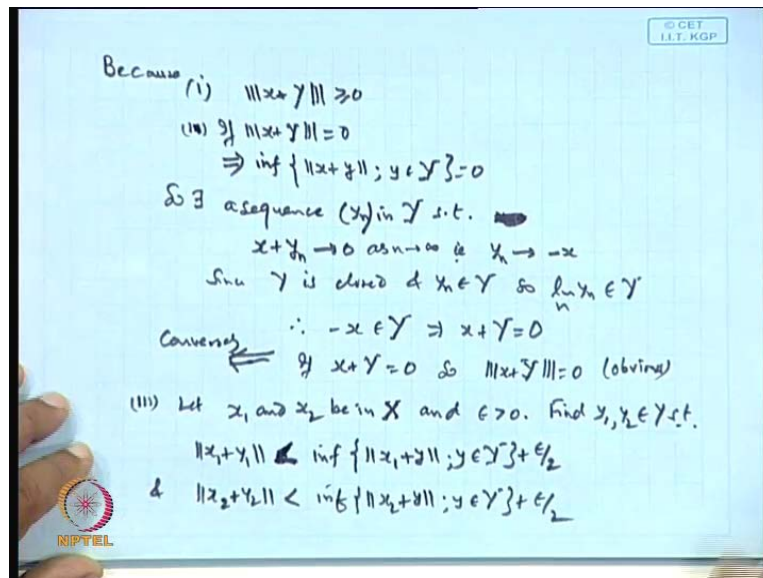 © CET
I.I.T. KGP
Because (i) |||x+Y||| ≥ 0
(ii) If |||x+Y||| = 0
⇒ inf {||x+y||; y ∈ Y} = 0
So ∃ a sequence (yn) in Y s.t.
x+yn → 0 as n→∞ ie yn → -x
Since Y is closed & yn ∈ Y so lim yn ∈ Y
n
∴ -x ∈ Y ⇒ x+Y=0
Conversely ⇐ If x+Y=0 So |||x+Y|||=0 (obvious)
(III) Let x1 and x2 be in X and ε>0. Find y1, y2 ∈ Y s.t.
||x1+y1|| < inf {||x1+y||; y ∈ Y} + ε/2
& ||x2+y2|| < inf {||x2+y||; y ∈ Y} + ε/2
NPTEL